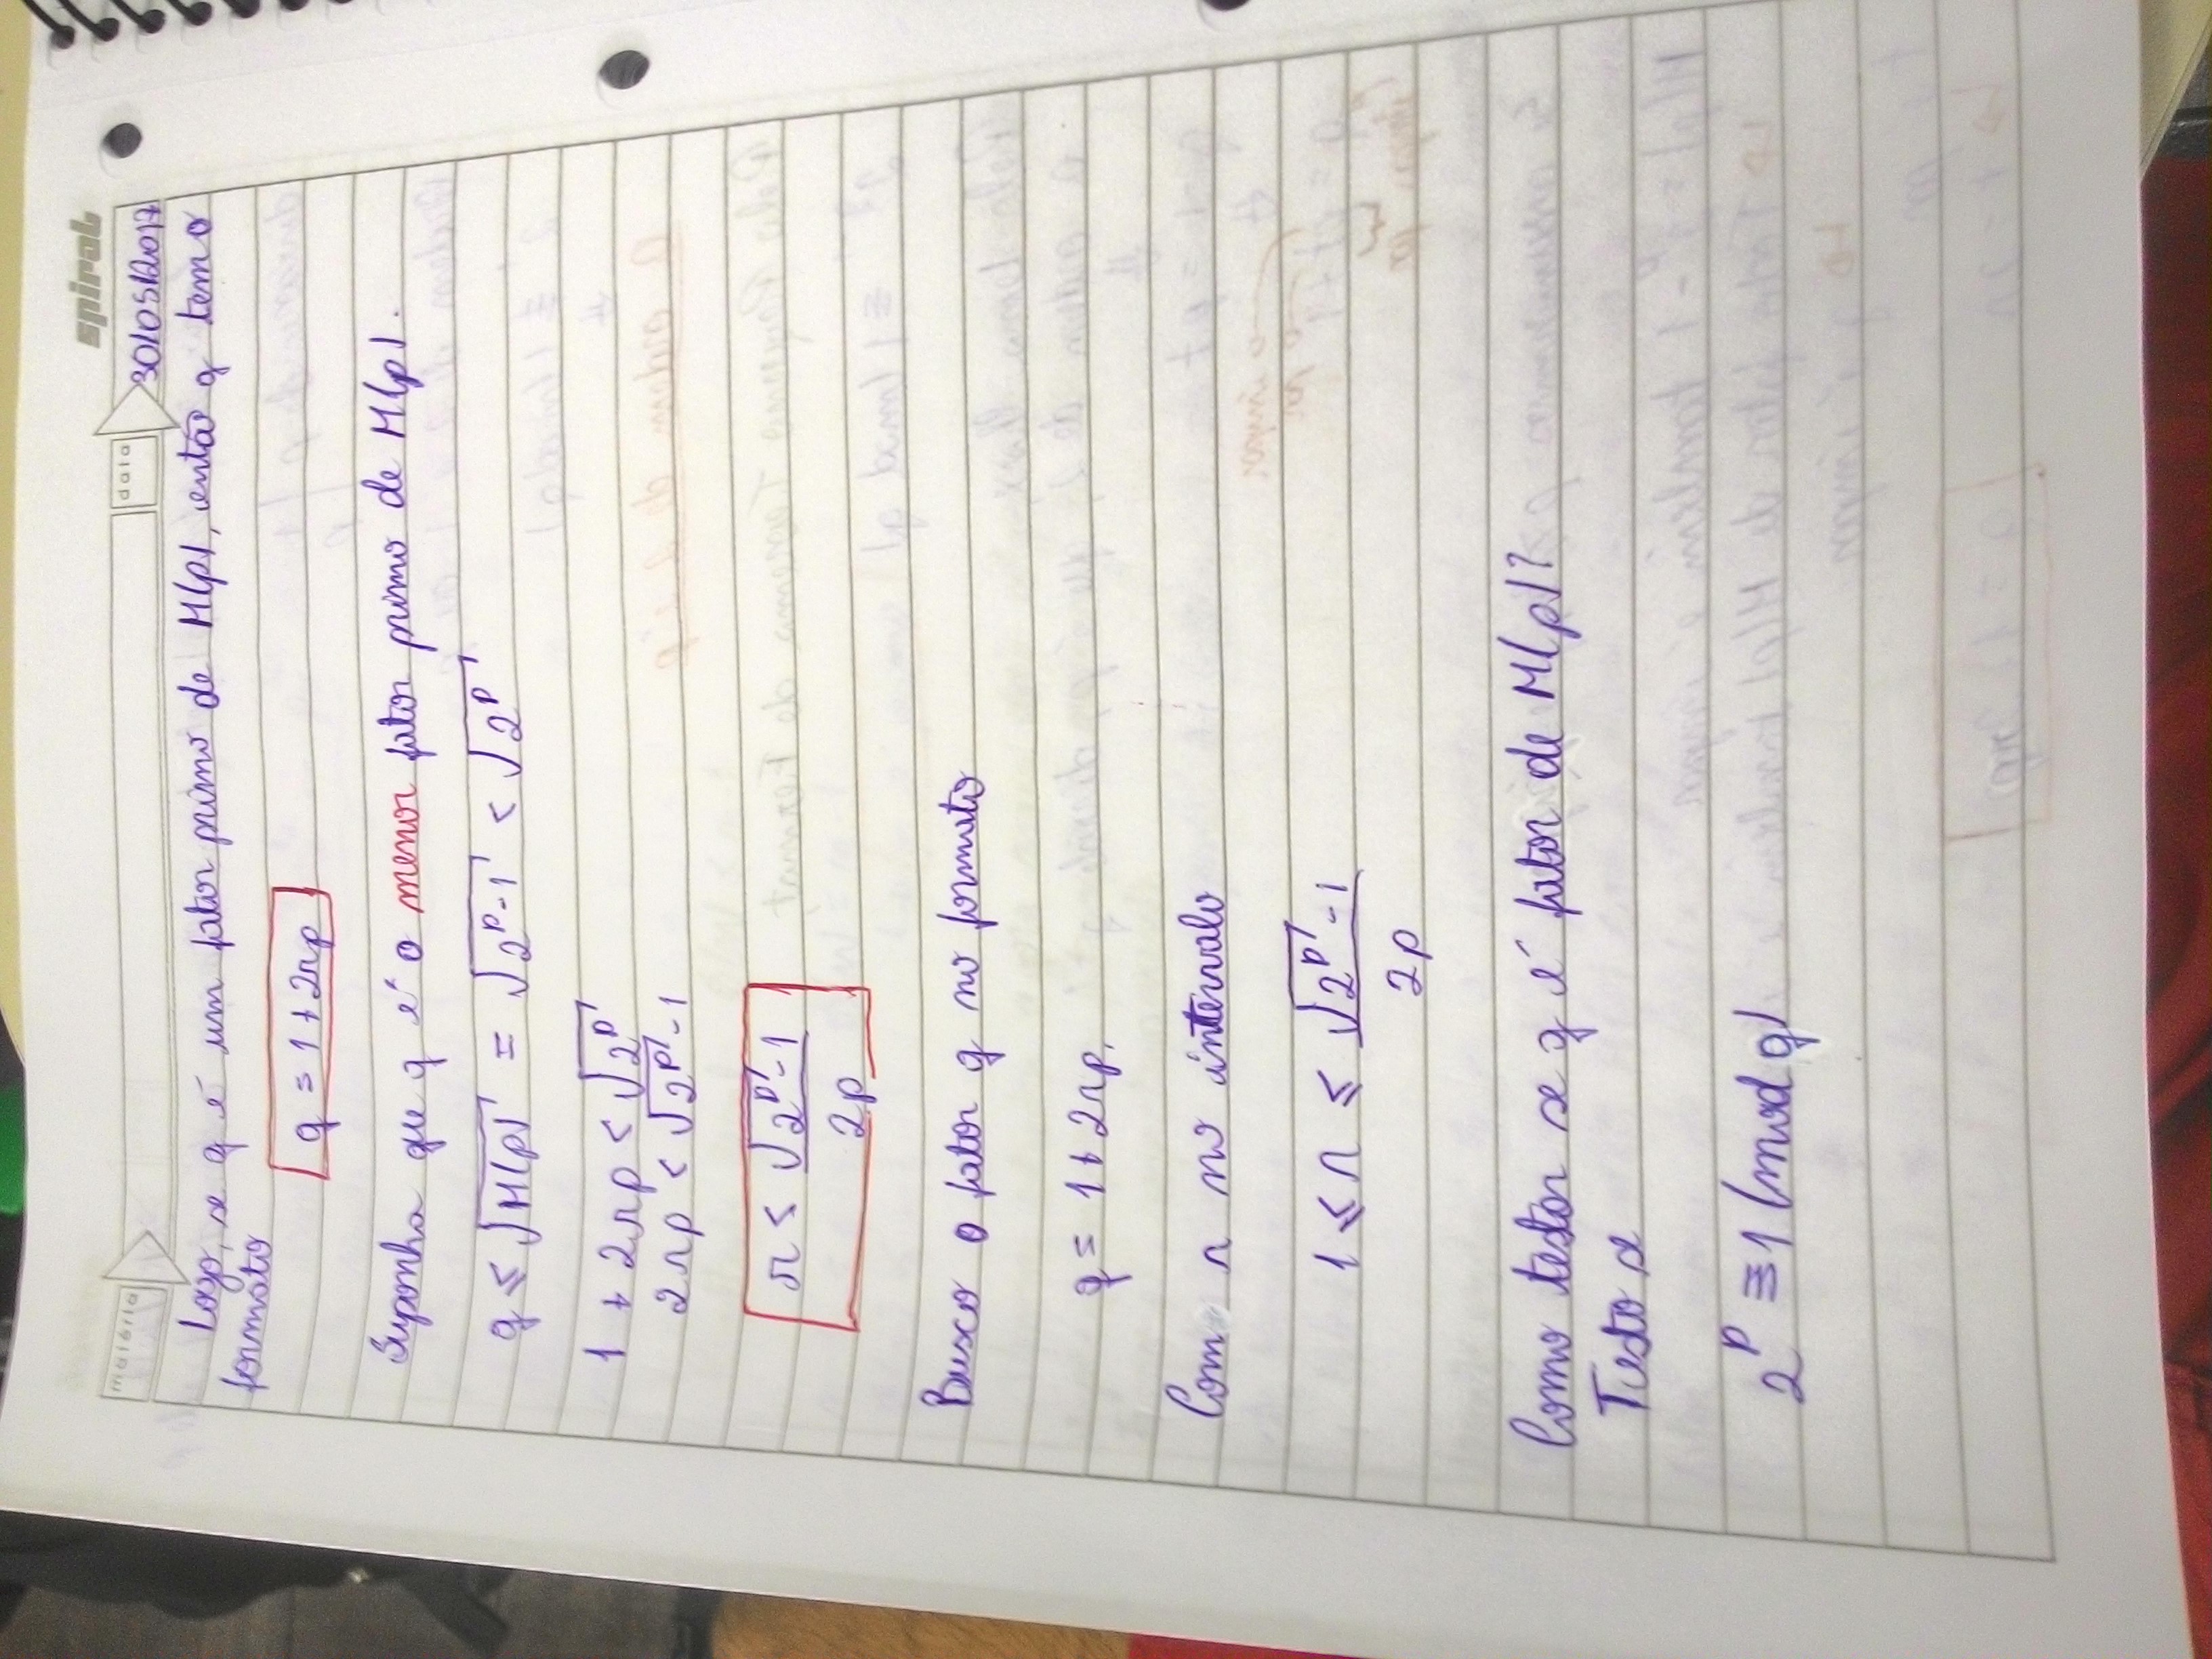 spiral
matéria
data
30/05/2017
Logo, se q é um fator primo de M(p), então q tem o
formato
q = 1 + 2rp
Suponha que q é o menor fator primo de M(p).
q ≤ √M(p) = √2^p - 1 < √2^p
1 + 2rp < √2^p
2rp < √2^p - 1
r < √2^p - 1
2p
Busco o fator q no formato
q = 1 + 2rp,
Com r no intervalo
1 ≤ r ≤ √2^p - 1
2p
Como testar se q é fator de M(p)?
Testo se
2^p ≡ 1 (mod q)